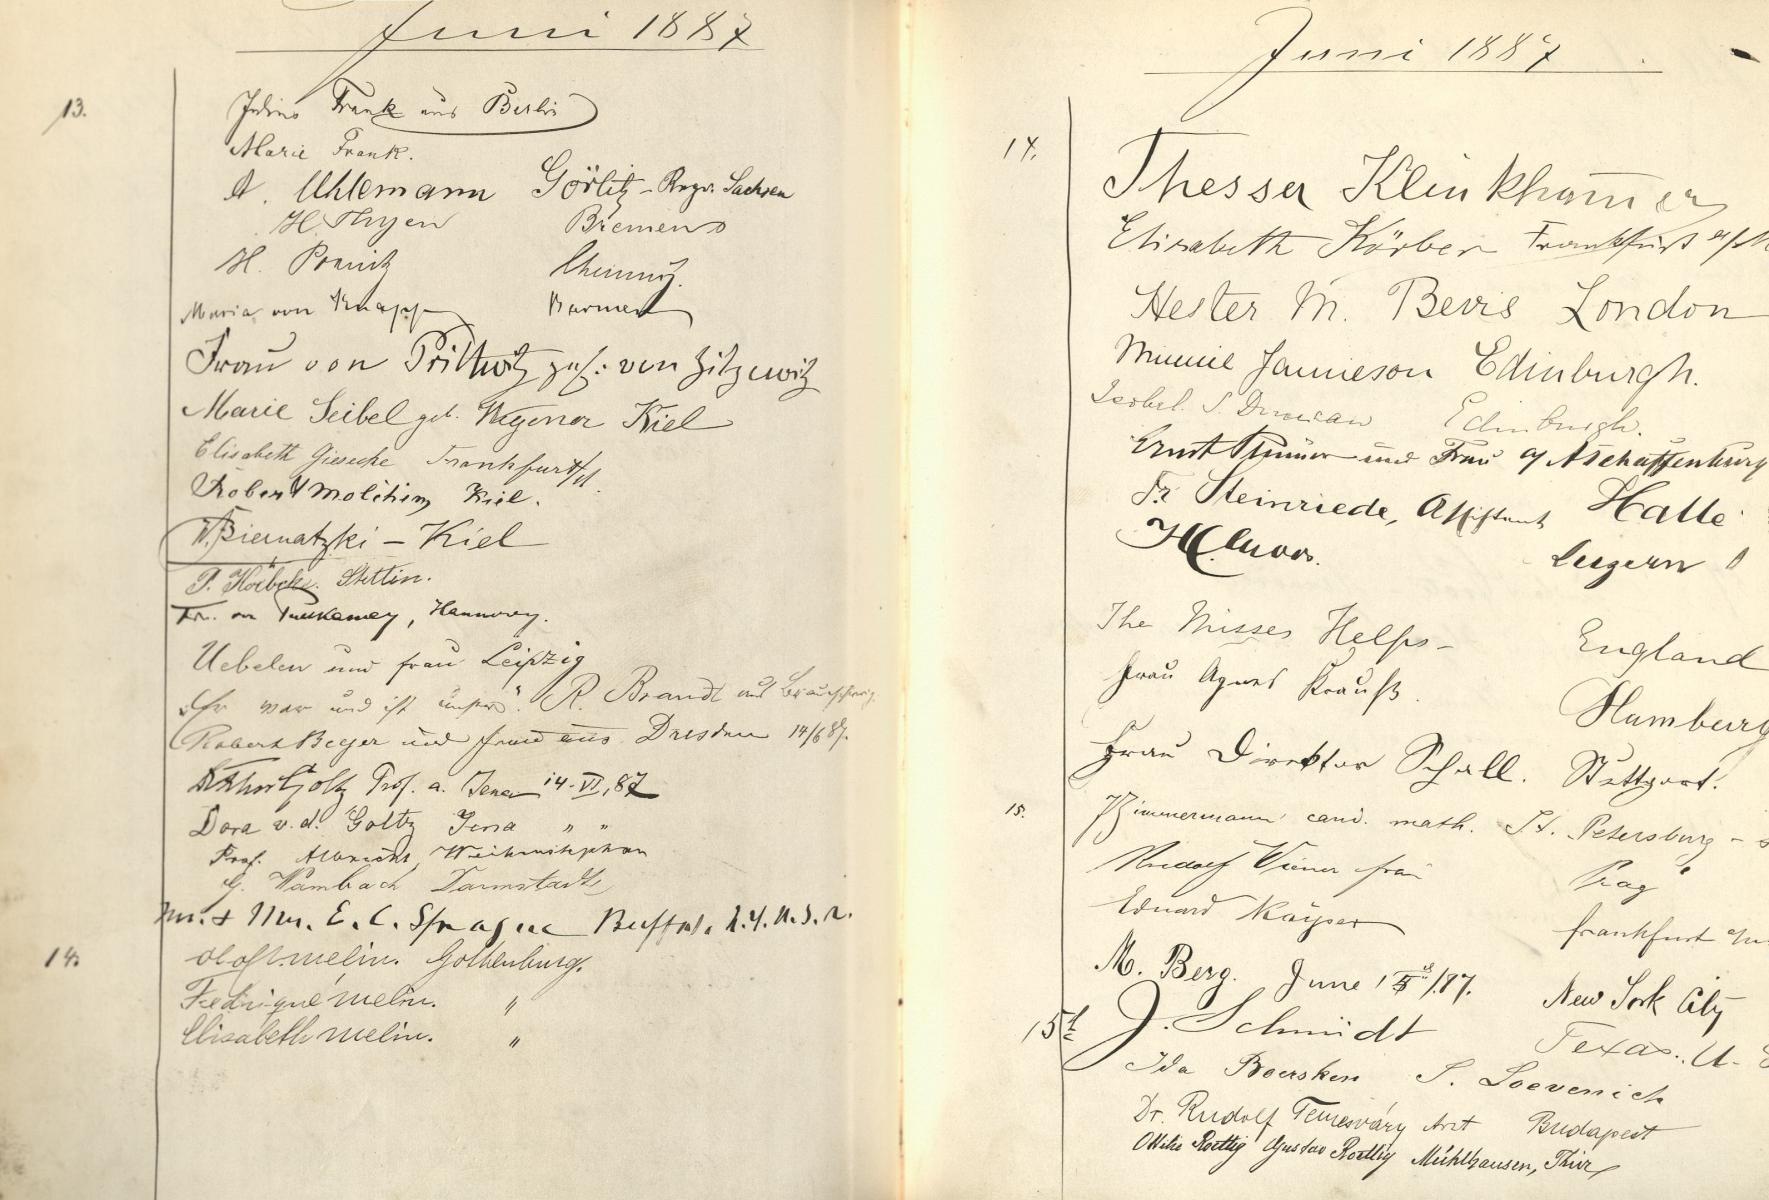 Juni 1887
13.
Julius Frank aus Berlin
Marie Frank.
A. Uhlemann Görlitz - Sachsen
H. Thyen Bremen
H. Chemnitz.
Maria von Knapp Barmen
Frau von Prittwitz geb. von Zitzewitz
Marie Seibel geb. Wegener Kiel
Elisabeth Giesecke Frankfurt
Robert Kiel.
W. Biernatzki - Kiel
P. Stettin.
Fr. Hannover.
Uebelen und Frau Leipzig
"Er war und ist unser". R. Brandt aus Braunschweig.
Robert Beyer und Frau aus Dresden 14/6 87.
Goltz Prof. a. Jena 14. VI. 87
Dora v. d. Goltz Jena " "
Prof. Albrecht, Weihenstephan
G. Wambach Darmstadt
Mr. & Mrs. E. C. Sprague Buffalo. N.Y. U.S.A.
14.
Olof Melin. Gothenburg.
Fredrique Melin. "
Elisabeth Melin. "
Juni 1887
14.
Thesser Klinkham̅er
Elisabeth Körber Frankfurt a/M
Hester M. Bevis London
Minnie Jamieson Edinburgh.
Isobel. S. Duncan Edinburgh.
Ernst und Frau a/ Aschaffenburg
Fr Steinriede, Assistent Halle
Luzern
The Misses Helps - England
Frau Agnes Krauß. Hamburg
Frau Direktor Schall. Stuttgart.
15.
Zimmermann cand. math. St. Petersburg -
Rudolf Wiener Prag
Eduard Kayser Frankfurt a/M
M. Berg. June /87. New York City
15th
J. Schmidt Texas. U.
Ida Boersken S. Loevenich
Dr. Rudolf Temesváry Arzt Budapest
Ottilie Roettig Gustav Roettig Mühlhausen, Thür